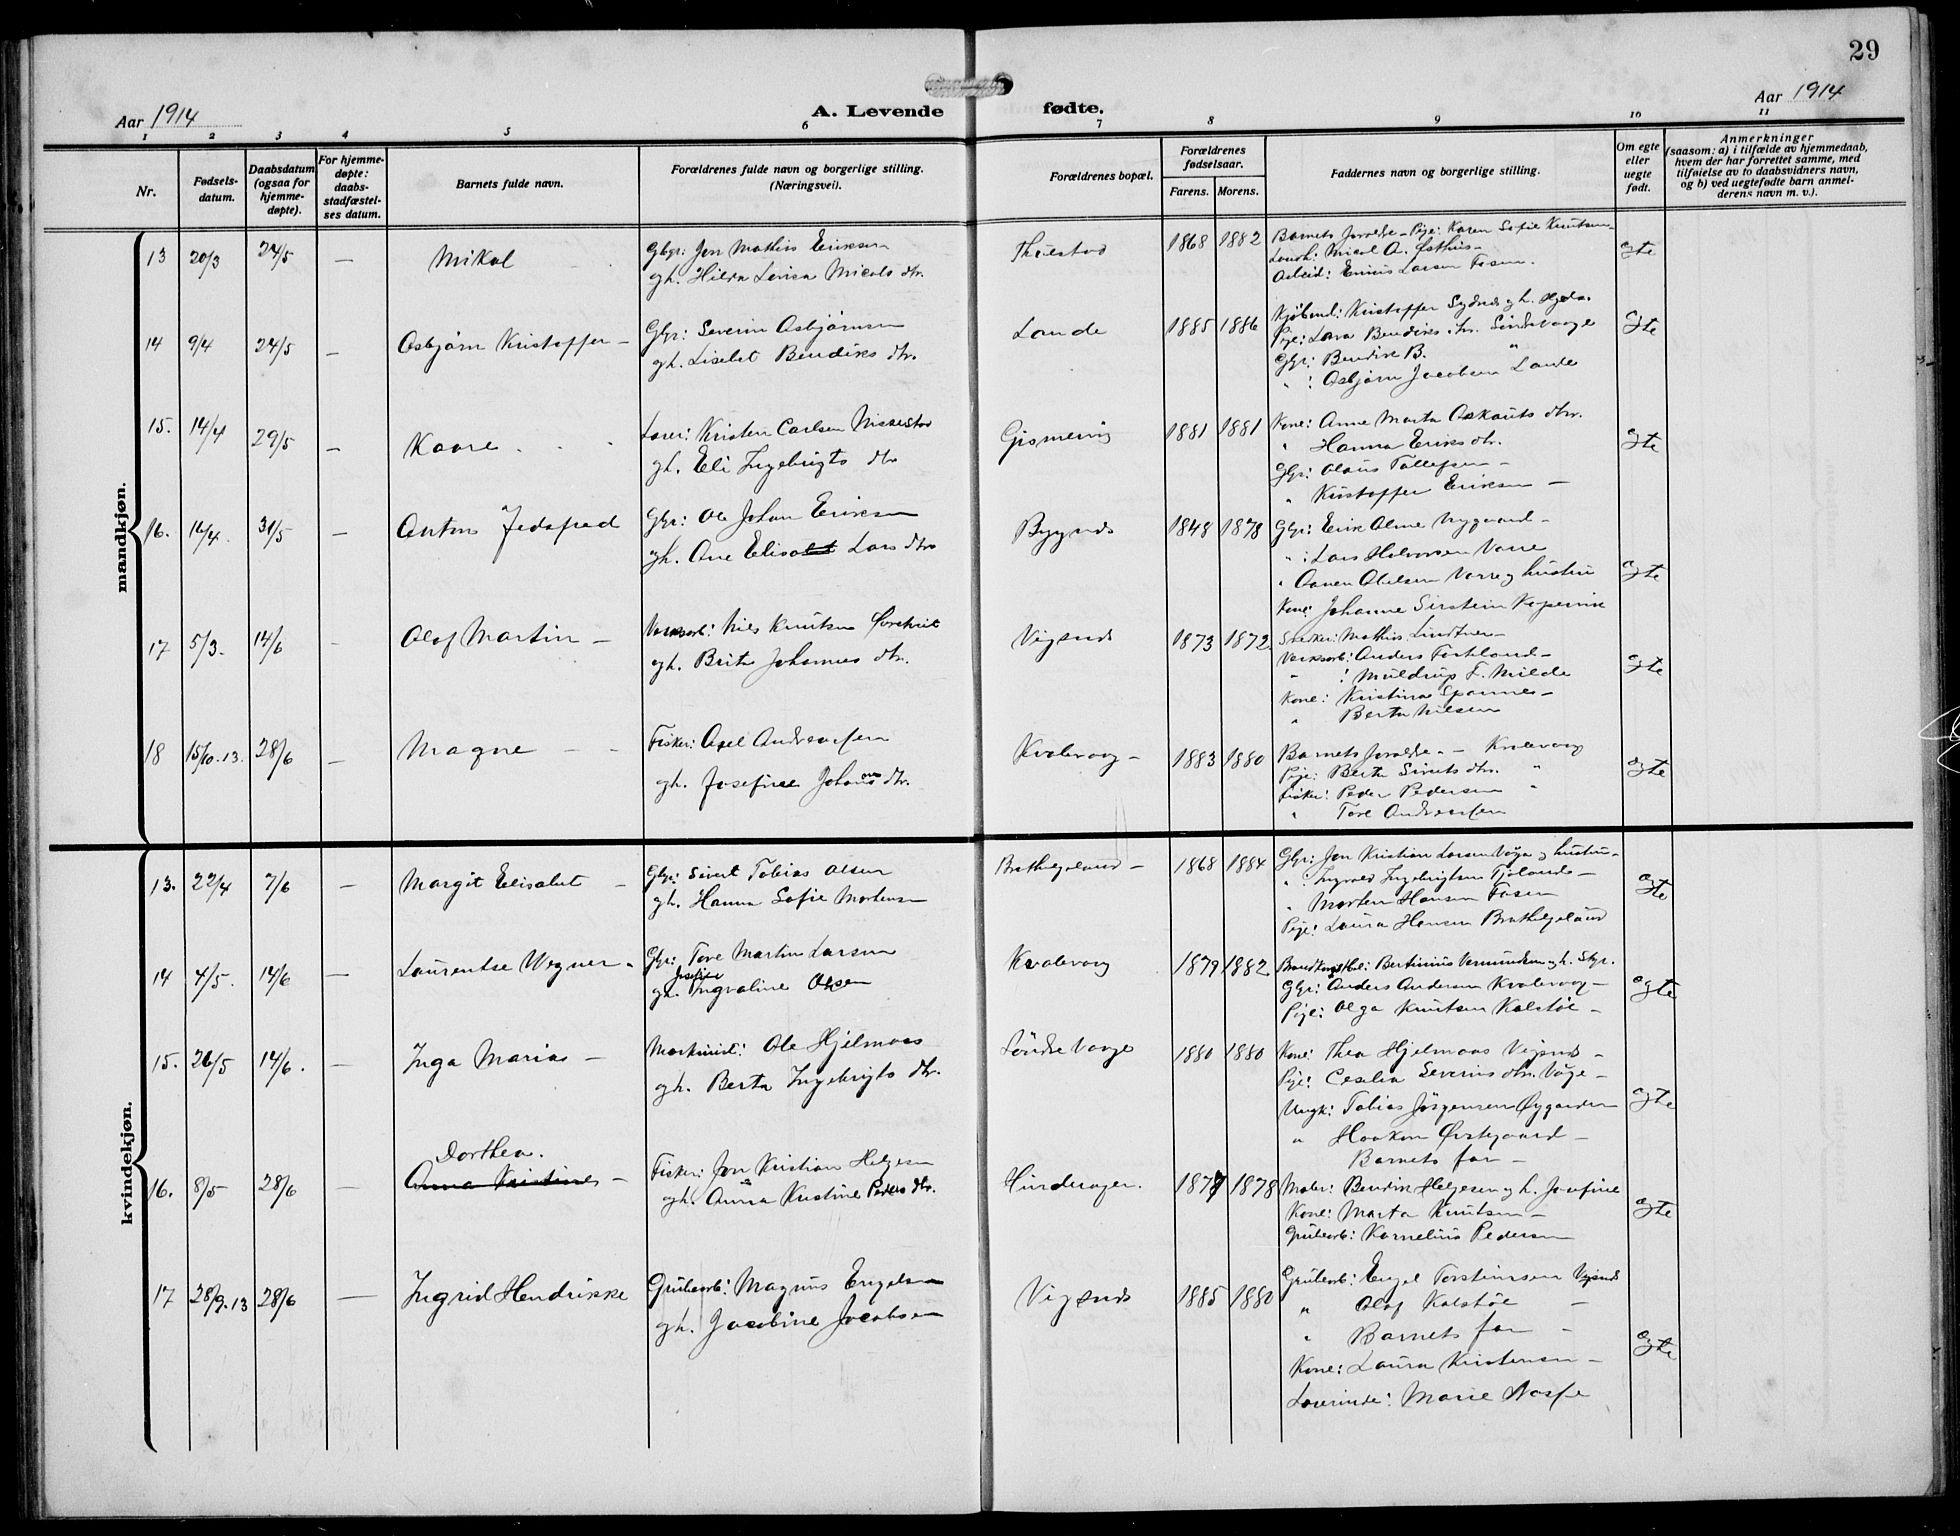 29
Aar 1914
A. Levende fødte.
Aar 1914
1 2 3 4 5 6 7 8 9 10 11
Nr.
Fødsels-
datum.
Daabsdatum
(ogsaa for
hjemme-
døpte).
For hjemme-
døpte:
daabs-
stadfæstel-
ses datum.
Barnets fulde navn.
Forældrenes fulde navn og borgerlige stilling.
(Næringsvei).
Forældrenes bopæl.
Forældrenes
fødselsaar.
Farens. Morens.
Faddernes navn og borgerlige stilling.
Om egte
eller
uegte
født.
Anmerkninger
(saasom: a) i tilfælde av hjemmedaab,
hvem der har forrettet samme, med
tilføielse av to daabsvidners navn,
og b) ved uegtefødte barn anmel-
derens navn m. v.).
mandkjøn.
13 20/3 24/5 — Mikal
Gbgr: Jon Mathias Eriksen
gh. Hilda Lovisa Micals dtr.
1868 1882
Barnets foreldre - Pije: Karen Sofie Knutsen
Micol A. Østhus
Arbeid: Enius Larsen Fosen.
egte
14 9/4 24/5 — Asbjørn Kristoffer —
Gbr: Severin Asbjørnsen
gh. Liselet Bendiks dtr.
Lande
1885 1886
Kristoffer Sydnes gh.
Pije: Lava Bendiks dtr. Søndrevaage
Gbr: Bendik B. "
" : Asbjørn Jacobsen Lande
egte
15. 14/4 29/5 — Kaare
Lærer: Kristen Carlsen
gh. Eli Ingebrigts dtr
Gismervig
1881 1881
Kone: Anne Marta Askauts dtr.
" Hanna Eriks dtr.
Gbr: Olaus Tollefsen —
" Kristoffer Eriksen —
egte
16. 16/4. 31/5 — Anton Jedsfred
Gbr: Ole Johan Eriksen
gh. Ane Elisabet Lars dtr
Bygnes
1848 1878
Gbr: Erik Olme Nygaard —
" : Lars Halvorsen Varre
" Aanen Abelsen Varre g hustru
Kone: Johanne Sirstein Kopervik
egte
17 5/3. 14/6 — Olaf Martin —
Verksarb: Nils Knutsen
gh. Brita Johannes dtr.
Vigsnes
1873 1872
Snedker: Mathis Lindtner —
Verksarb: Anders Forland —
" : Muldrup T. Milde
Kone: Kristina Spannes —
" Berta Nilsen
egte
18 15/10.13. 28/6 — Magne — -
Fisker: Axel Andreassen
gh. Josefine Johans dtr.
Kvalevaag —
1883 1880
Barnets foreldre — Kvalevaag
Pije: Berta Sivets dtr. "
Fisker: Peder Pedersen "
" Tore Andreassen
egte
kvindekjøn.
13. 22/4 7/6 — Margit Elisabet —
Gbr: Sivert Tobias Olsen
gh. Hanna Sofie Mortensen
Brathelgeland —
1868 1884
Gbr: Jon Kristian Larsen Våga g hustru —
" : Ingvald Ingebrigtsen Tjoland —
" Morten Hansen Fosen
Pije: Laura Hansen Brathelgeland
egte
14 4/5. 14/6 — Laurentse Wegner —
Gbr: Tore Martin Larsen
Josefine
gh. Ingvaline Olsen
Kvalevaag
1879 1882
Bertinius Vermundsen gh. Styr.
Gbr: Anders Andersen Kvalevaag —
Pije: Olga Knutsen Kalstøe —
egte
15. 26/5 14/6. — Inga Maria —
Maskinist: Ole Hjelmaas
gh. Berta Ingebrigts dtr.
Søndre Vaage
1880 1880
Kone: Thea Hjelmaas Vigsnes —
Pije: Cecilia Severins dtr. Våge —
Ungk: Tobias Jørgensen Øygarden
" Haakon Østegaard —
Barnets far —
egte
Dorthea.
16. 8/5 28/6 — Anna Kristine —
Fisker: Jon Kristian Helgesen
gh. Anna Kristine Peders dtr.
Hinderager.
1877 1878
Maler: Bendik Helgesen g h. Josefine
Kone: Marta Knutsen —
Grubearb: Kornelius Pedersen
egte
17 28/9.13 28/6 — Ingrid Hendrikke
Grubearb: Magnus Engelsen
gh. Jacobine Jacobsen
Vigsnes
1885 1880
Grubearb: Engel Torstinsen Vigsnes
" Olaf Kalstøe —
" Barnets far —
Kone: Laura Kristensen —
Lærerinde: Marie Aasfe
egte